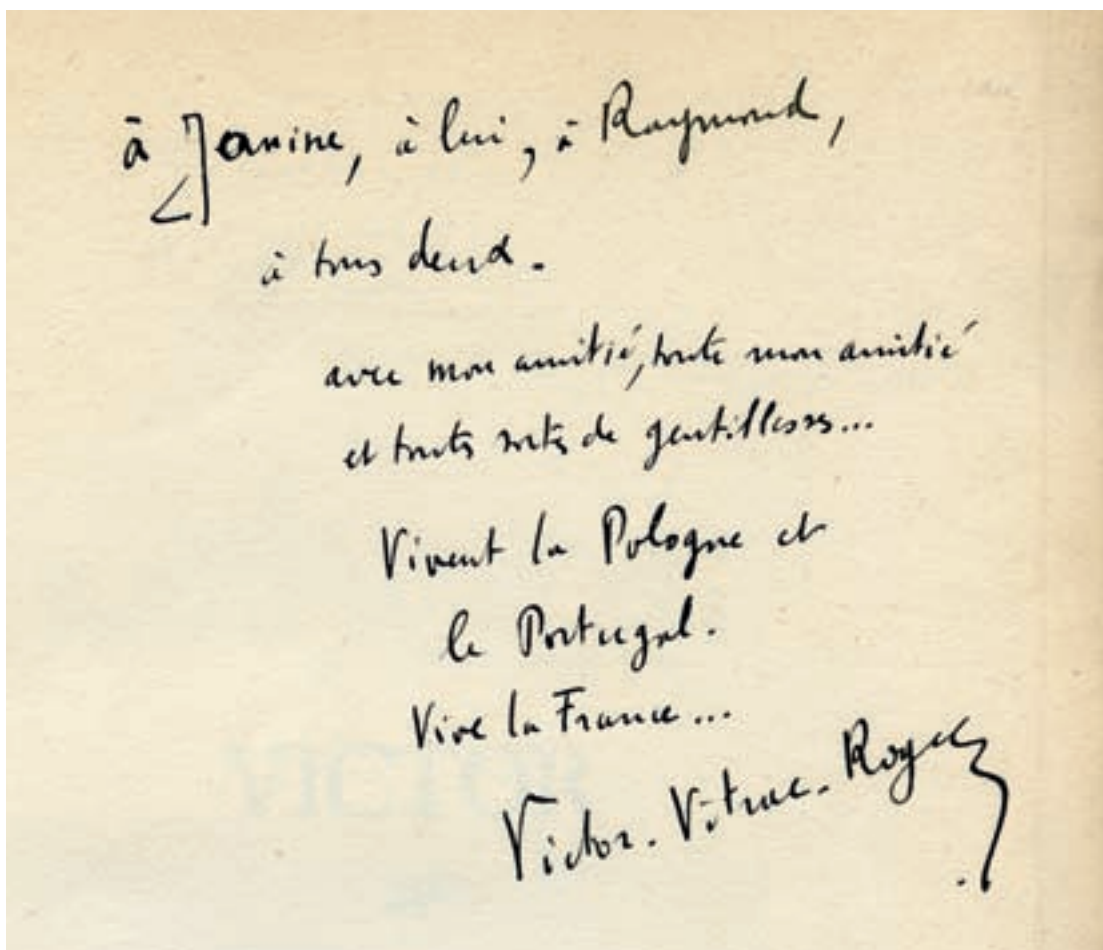 à Janine, à lui, à Raymond,
à tous deux.
avec mon amitié, toute mon amitié
et toutes sortes de gentillesses...
Vivent la Pologne et
le Portugal.
Vive la France...
Victor. Vitrac. Roger
VICTOR